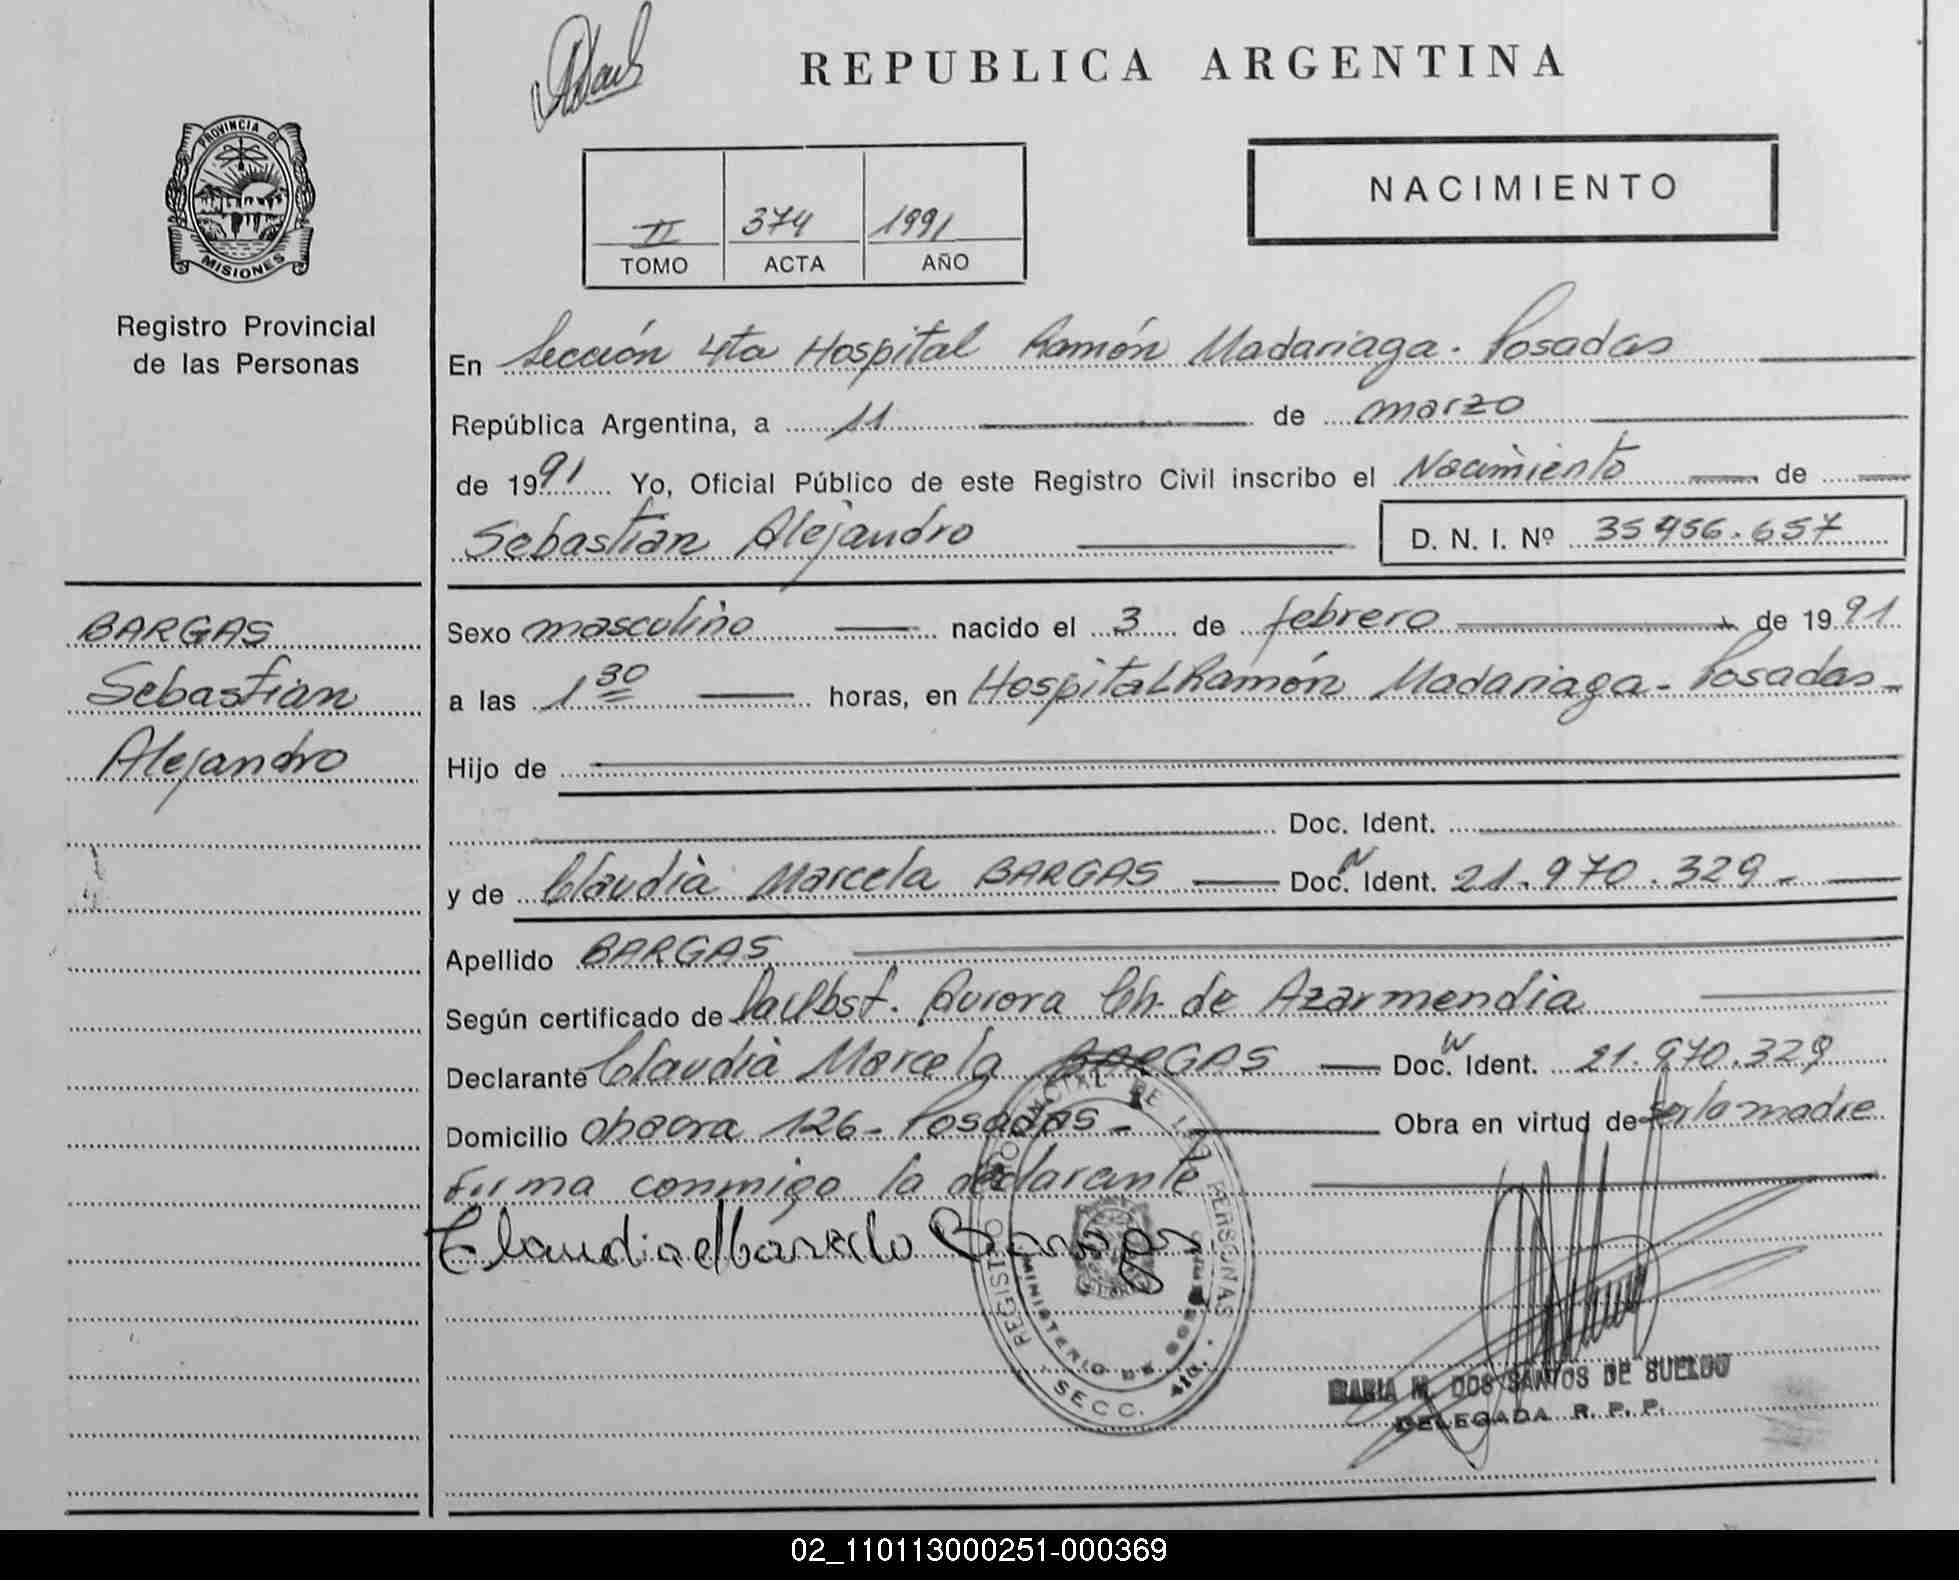 REPUBLICA ARGENTINA
PROVINCIA DE
MISIONES
Registro Provincial
de las Personas
II 374 1991
TOMO ACTA AÑO
NACIMIENTO
En Sección 4ta Hospital Ramón Madariaga - Posadas
República Argentina, a 11 de marzo
de 1991 Yo, Oficial Público de este Registro Civil inscribo el Nacimiento de
Sebastian Alejandro D. N. I. Nº 35456.657
BARGAS
Sebastian
Alejandro
Sexo masculino nacido el 3 de febrero de 1991
a las 1 30 horas, en Hospital Ramón Madariaga - Posadas -
Hijo de
Doc. Ident.
y de Claudia Marcela BARGAS Doc. Ident. 21.970.329 -
Apellido BARGAS
Según certificado de Aurora Ch. de Azarmendia
Declarante Claudia Marcela BARGAS Doc. Ident. 21.970.329
Domicilio chacra 126 - Posadas - Obra en virtud de ser la madre
Firma conmigo la declarante
Claudia Marcela Bargas
REGISTRO PROVINCIAL DE LAS PERSONAS
MINISTERIO DE GOBIERNO
SECC. 4ta.
MARIA M. DOS SANTOS DE SUELDO
DELEGADA R. P. P.
02_110113000251-000369